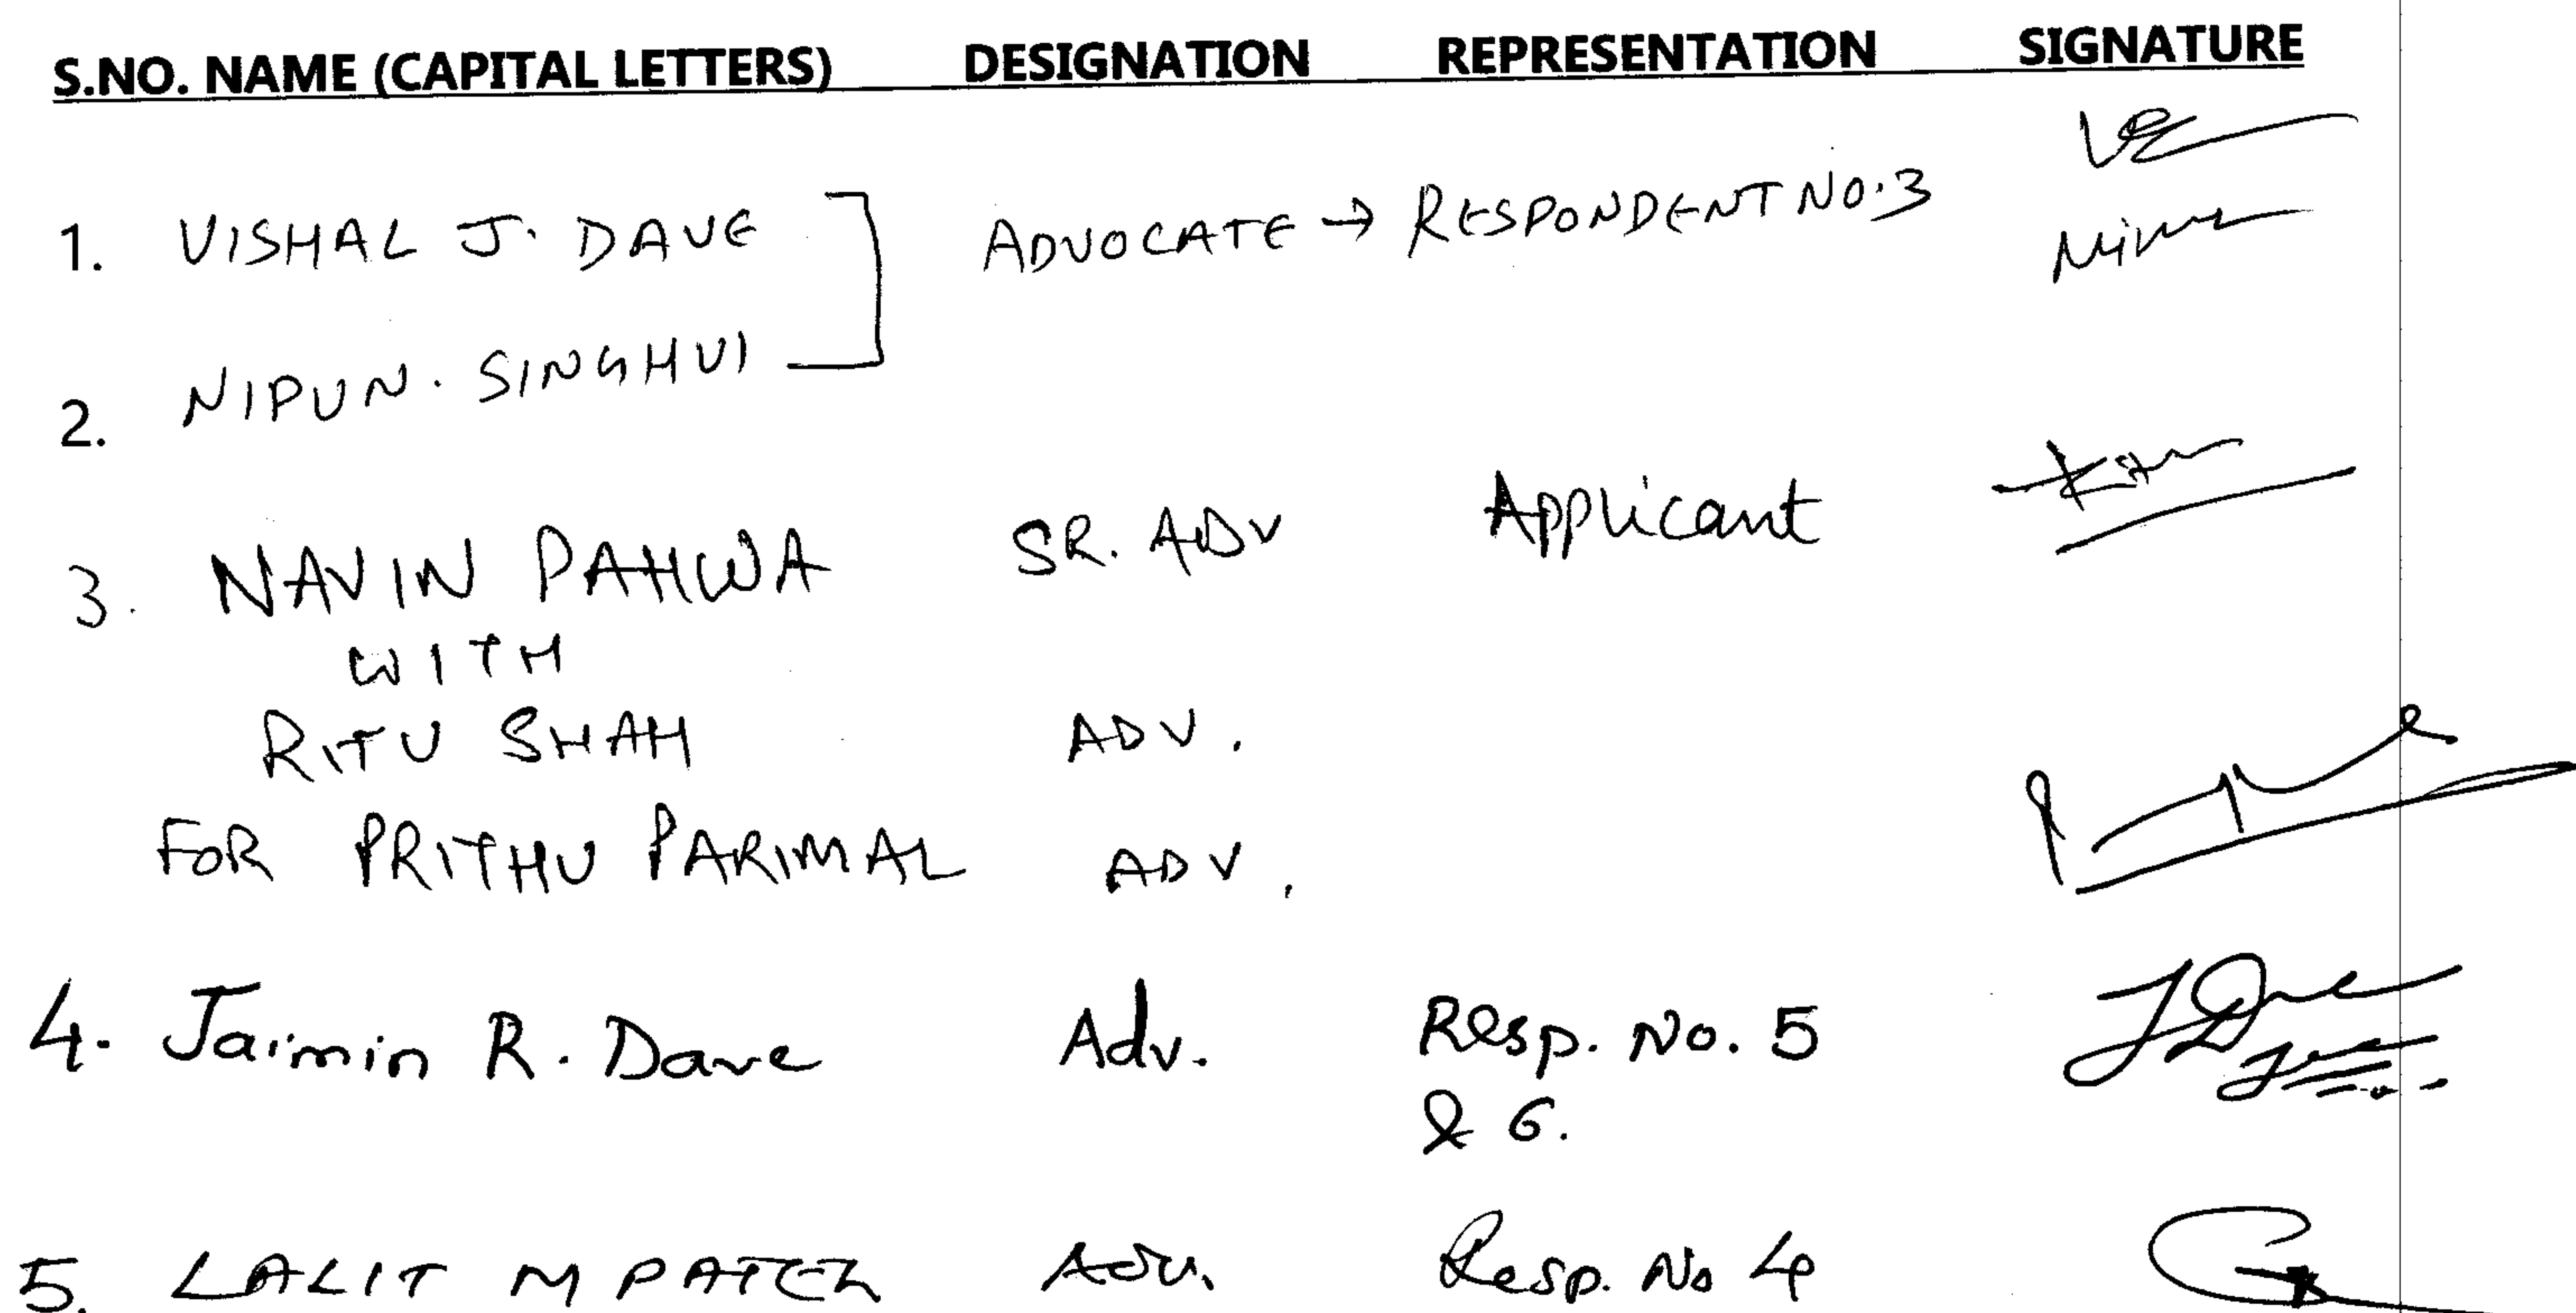 S.NO. NAME (CAPITAL LETTERS) DESIGNATION REPRESENTATION SIGNATURE
1. VISHAL J. DAVE ADVOCATE → RESPONDENT NO.3
2. NIPUN. SINGHVI
3. NAVIN PAHWA SR. ADV Applicant
WITH
RITU SHAH ADV.
FOR PRITHU PARIMAL ADV.
4. Jaimin R. Dave Adv. Resp. No. 5
& 6.
5. LALIT M PATEL Adv. Resp. No 4